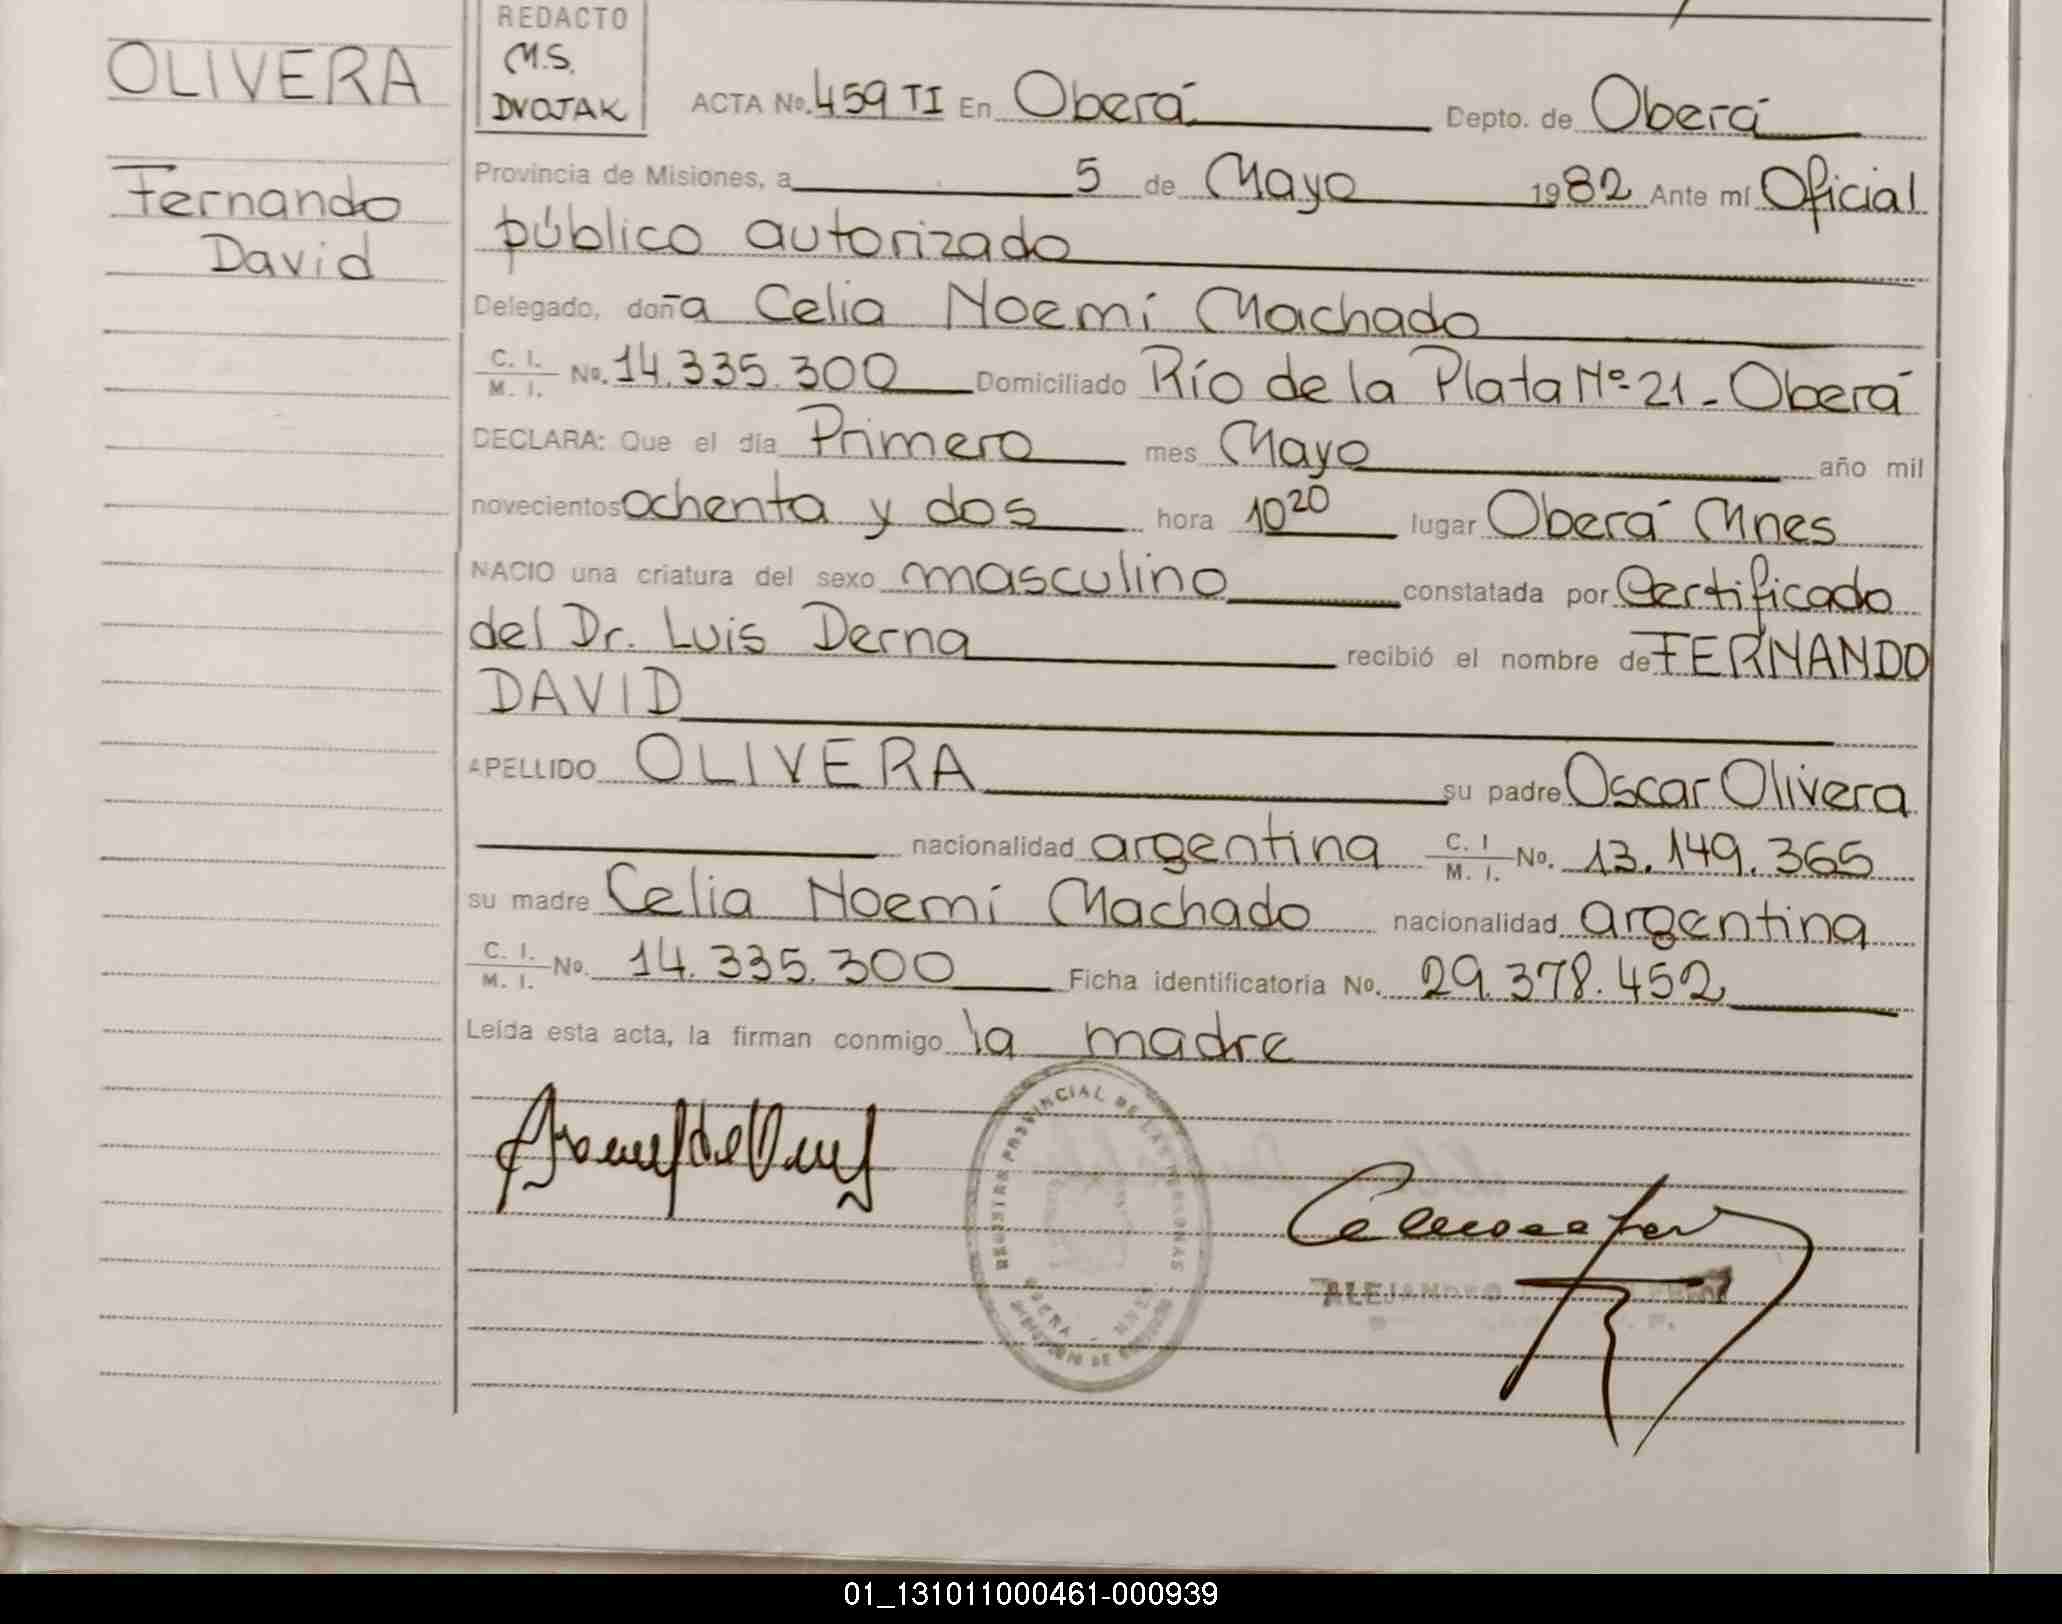 OLIVERA
Fernando
David
REDACTO
M.S.
DVOJAK
ACTA No. 459 TI En Oberá Depto. de Oberá
Provincia de Misiones, a 5 de Mayo 1982 Ante mí Oficial
público autorizado
Delegado, doña Celia Noemí Machado
C. I. M. I. No. 14.335.300 Domiciliado Río de la Plata Nº 21 - Oberá
DECLARA: Que el día Primero mes Mayo año mil
novecientos ochenta y dos hora 10 20 lugar Oberá Mnes
NACIO una criatura del sexo masculino constatada por Certificado
del Dr. Luis Derna recibió el nombre de FERNANDO
DAVID
APELLIDO OLIVERA su padre Oscar Olivera
nacionalidad argentina C. I M. I. No. 13.149.365
su madre Celia Noemí Machado nacionalidad argentina
C. I. M. I. No. 14.335.300 Ficha identificatoria No. 29.378.452
Leída esta acta, la firman conmigo la madre
PROVINCIAL DE LAS PERSONAS
ALEJANDRO
01_131011000461-000939